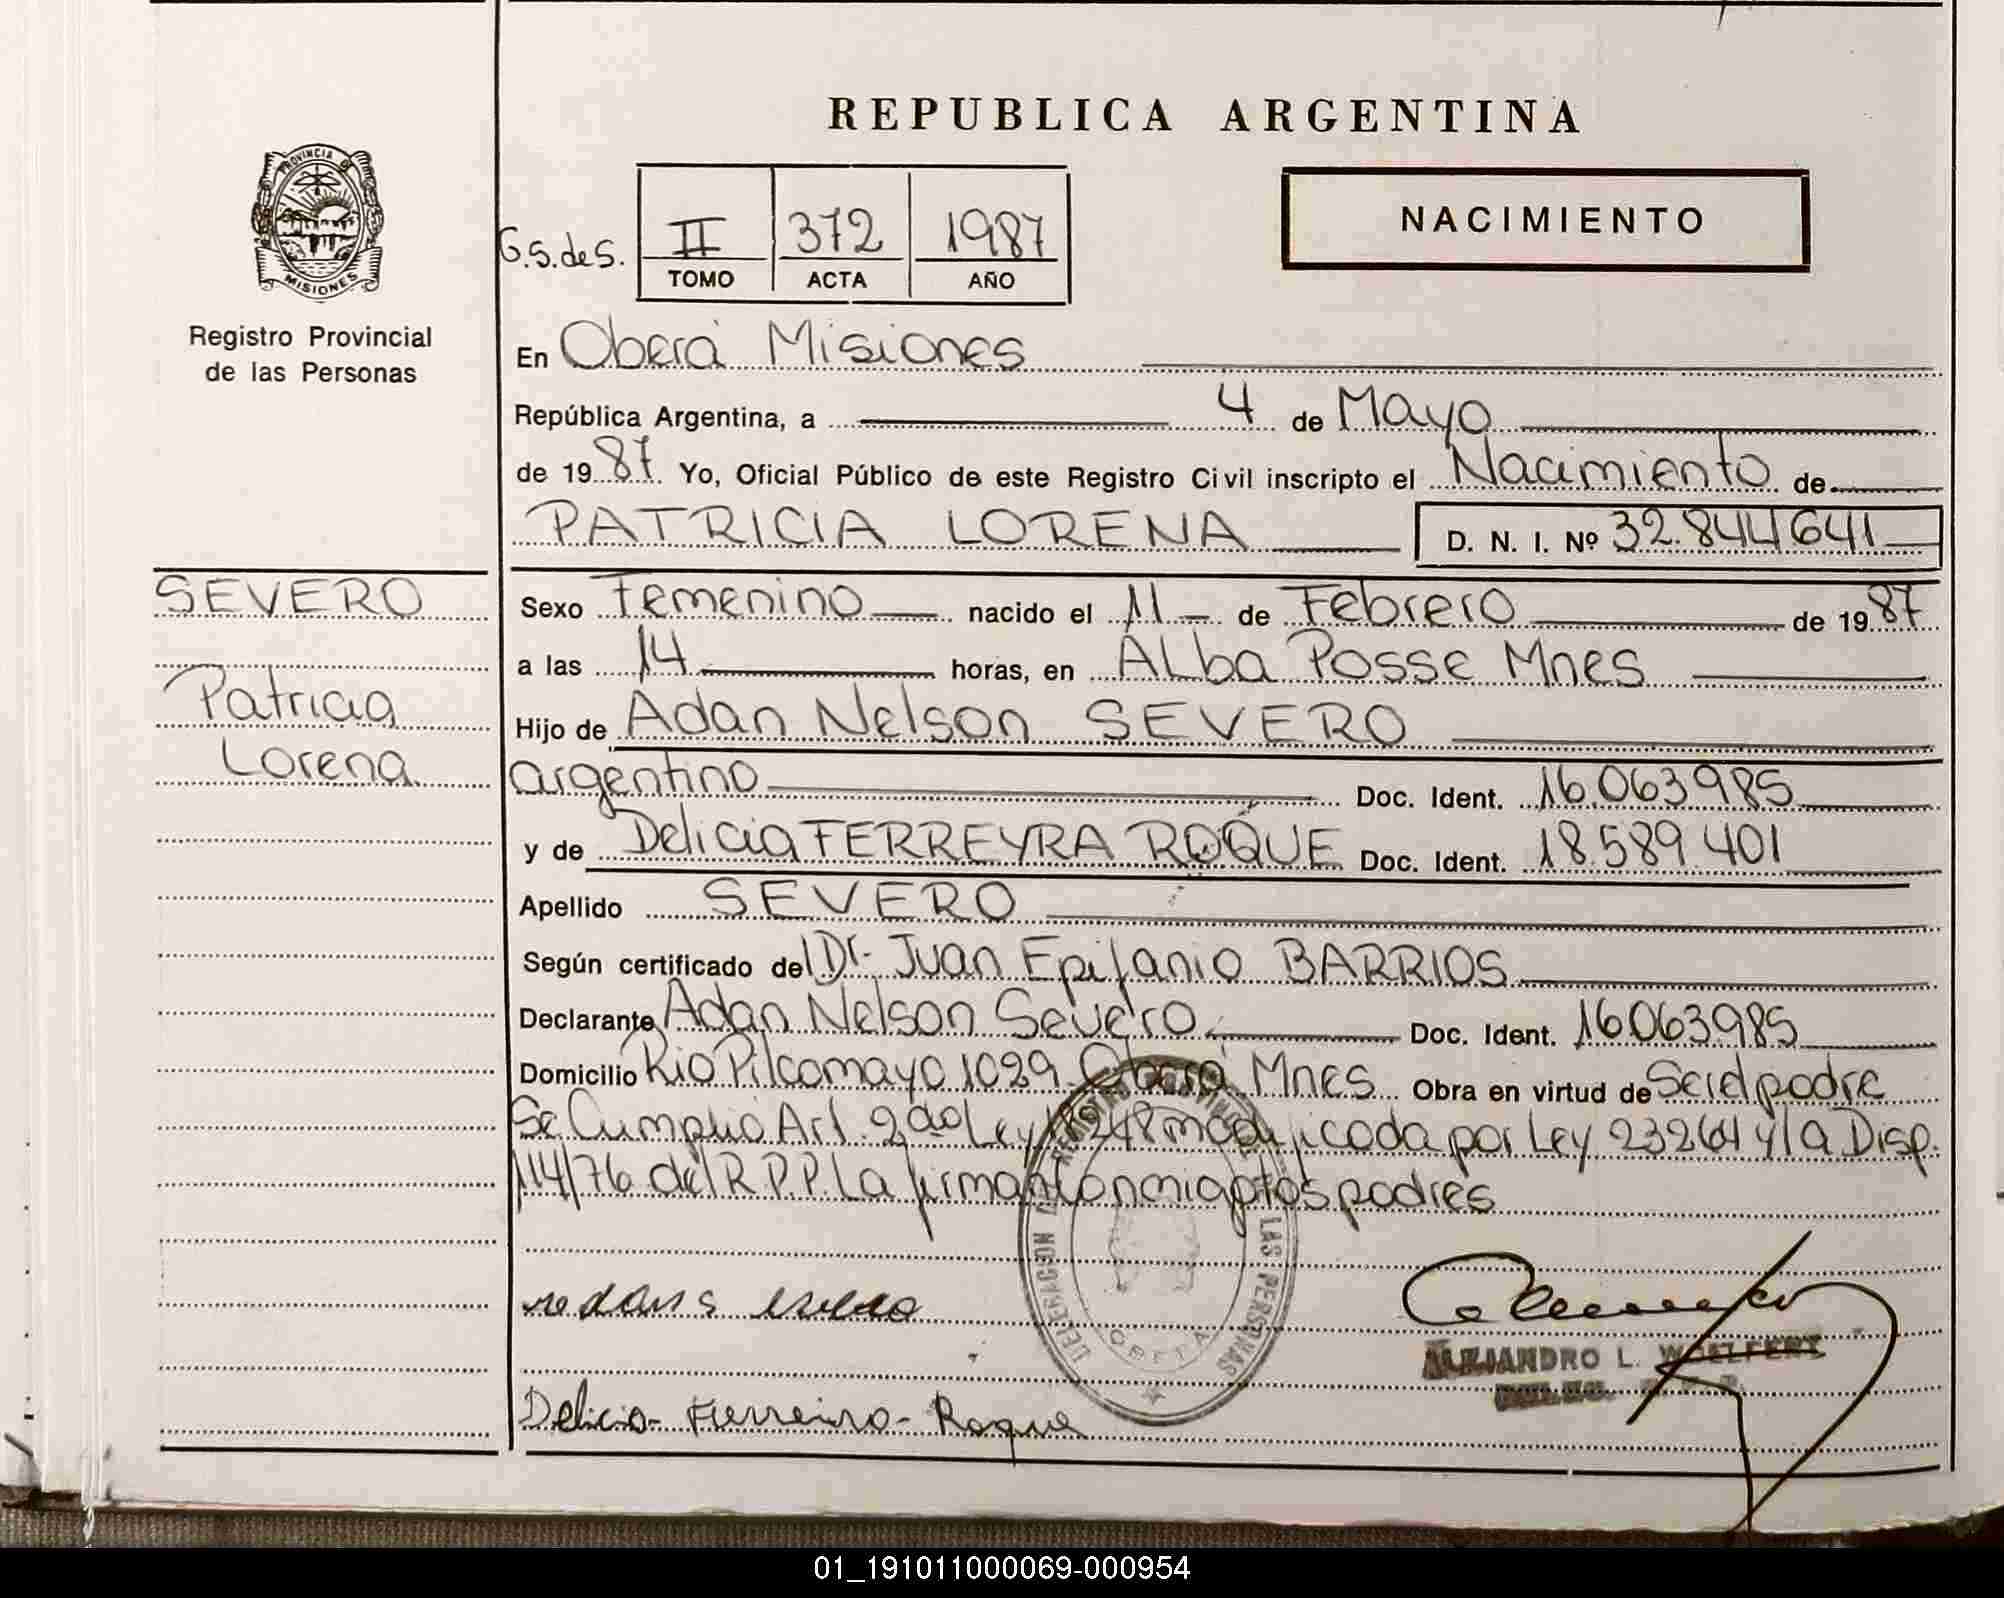 REPUBLICA ARGENTINA
PROVINCIA DE
MISIONES
Registro Provincial
de las Personas
G.S.de S.
II 372 1987
TOMO ACTA AÑO
NACIMIENTO
En Oberá Misiones
República Argentina, a 4 de Mayo
de 1987. Yo, Oficial Público de este Registro Civil inscripto el Nacimiento de
PATRICIA LORENA D. N. I. Nº 32.844641
SEVERO
Patricia
Lorena
Sexo Femenino nacido el 11 de Febrero de 1987
a las 14 horas, en Alba Posse Mnes
Hijo de Adan Nelson SEVERO
argentino Doc. Ident. 16.063985
y de Delicia FERREYRA ROQUE Doc. Ident. 18.589.401
Apellido SEVERO
Según certificado del Dr. Juan Epifanio BARRIOS
Declarante Adan Nelson Severo Doc. Ident. 16063985
Domicilio Rio Pilcomayo 1029 Oberá Mnes Obra en virtud de Ser el padre
Se Cumplió Art. 2 do Ley 18248 modificada por Ley 23264 y la Disp.
114/76 del R.P.P. La firman conmigo los padres
DELEGACION LAS PERSONAS
ALEJANDRO L. WOELFERT
Delicia Ferreira Roque
01_191011000069-000954